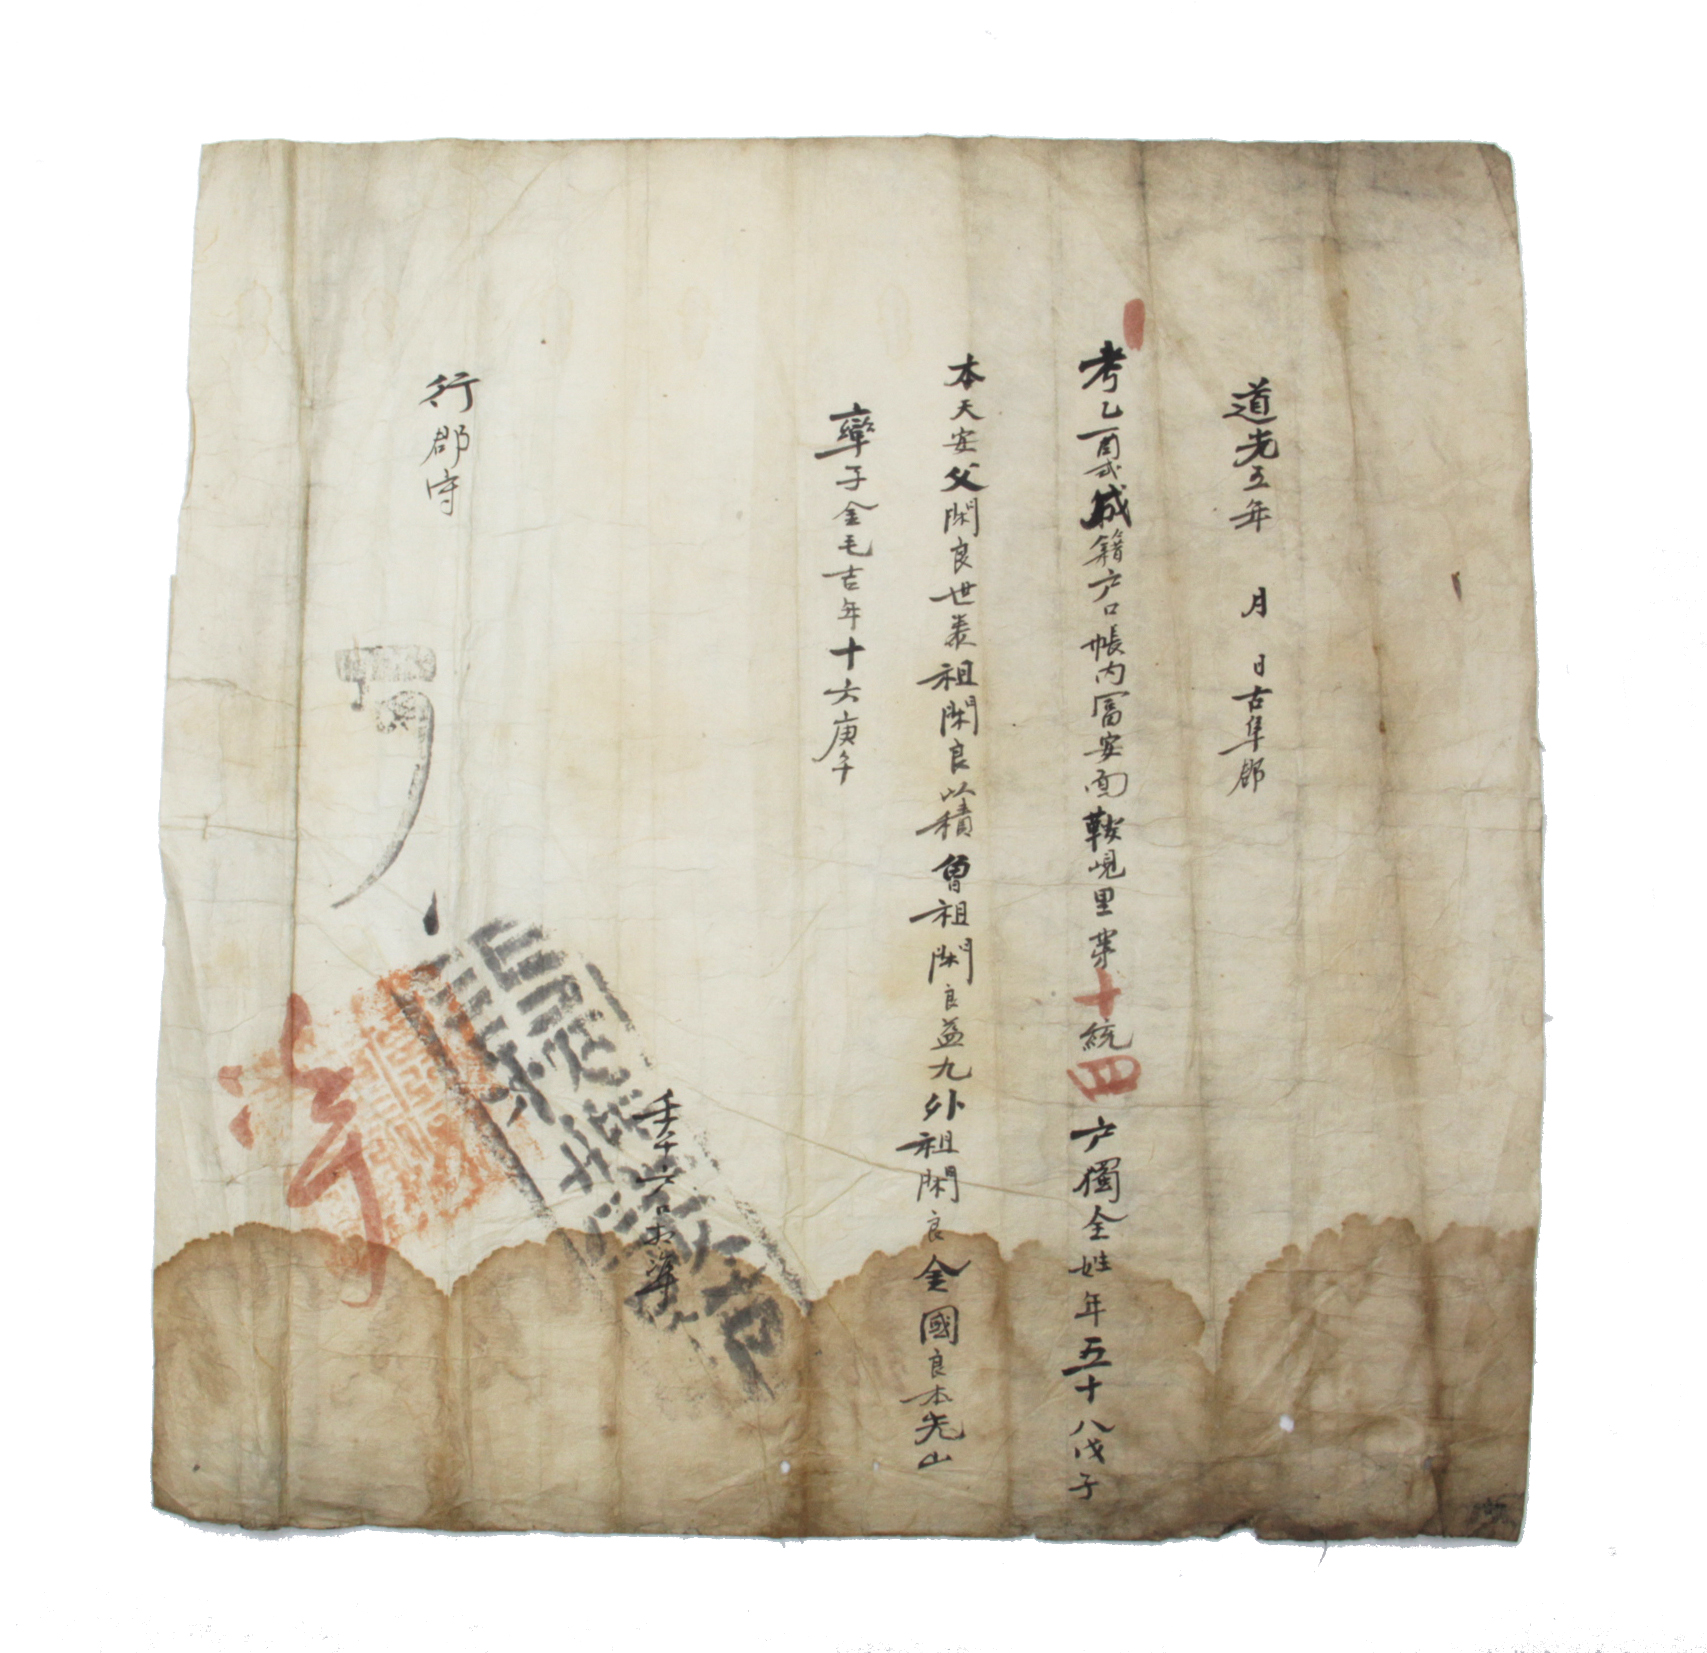 道光五年 月 日古阜郡
考乙酉式成籍户口帳內富安面鞍峴里第十統四户獨金姓年五十八戊子
本天安父閑良世泰祖閑良以積曾祖閑良益九外祖閑良金國良本光山
率子金毛吉年十六庚午
壬午户口相準
行郡守